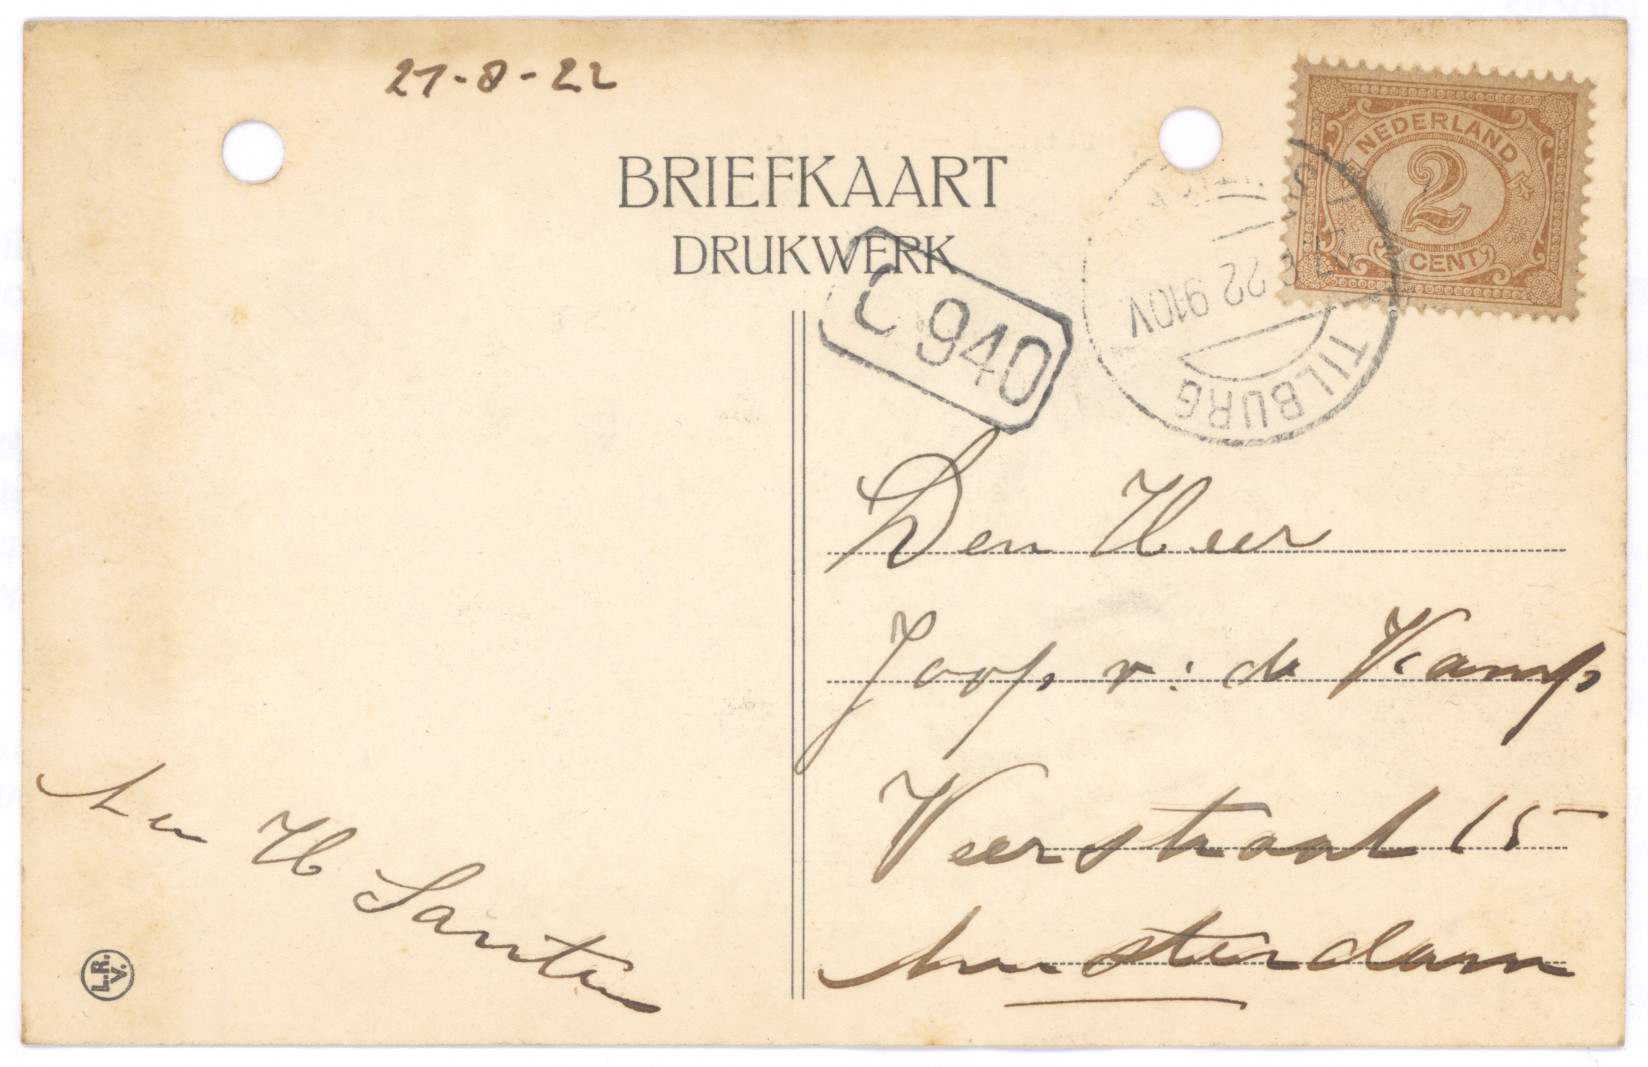 27-8-22
BRIEFKAART
DRUKWERK
NEDERLAND
2
CENT
22 9-10V
TILBURG
C 940
Den Heer
Joop v: de Kamp
Veerstraat 15
Amsterdam
H Santen
L.R.
V.